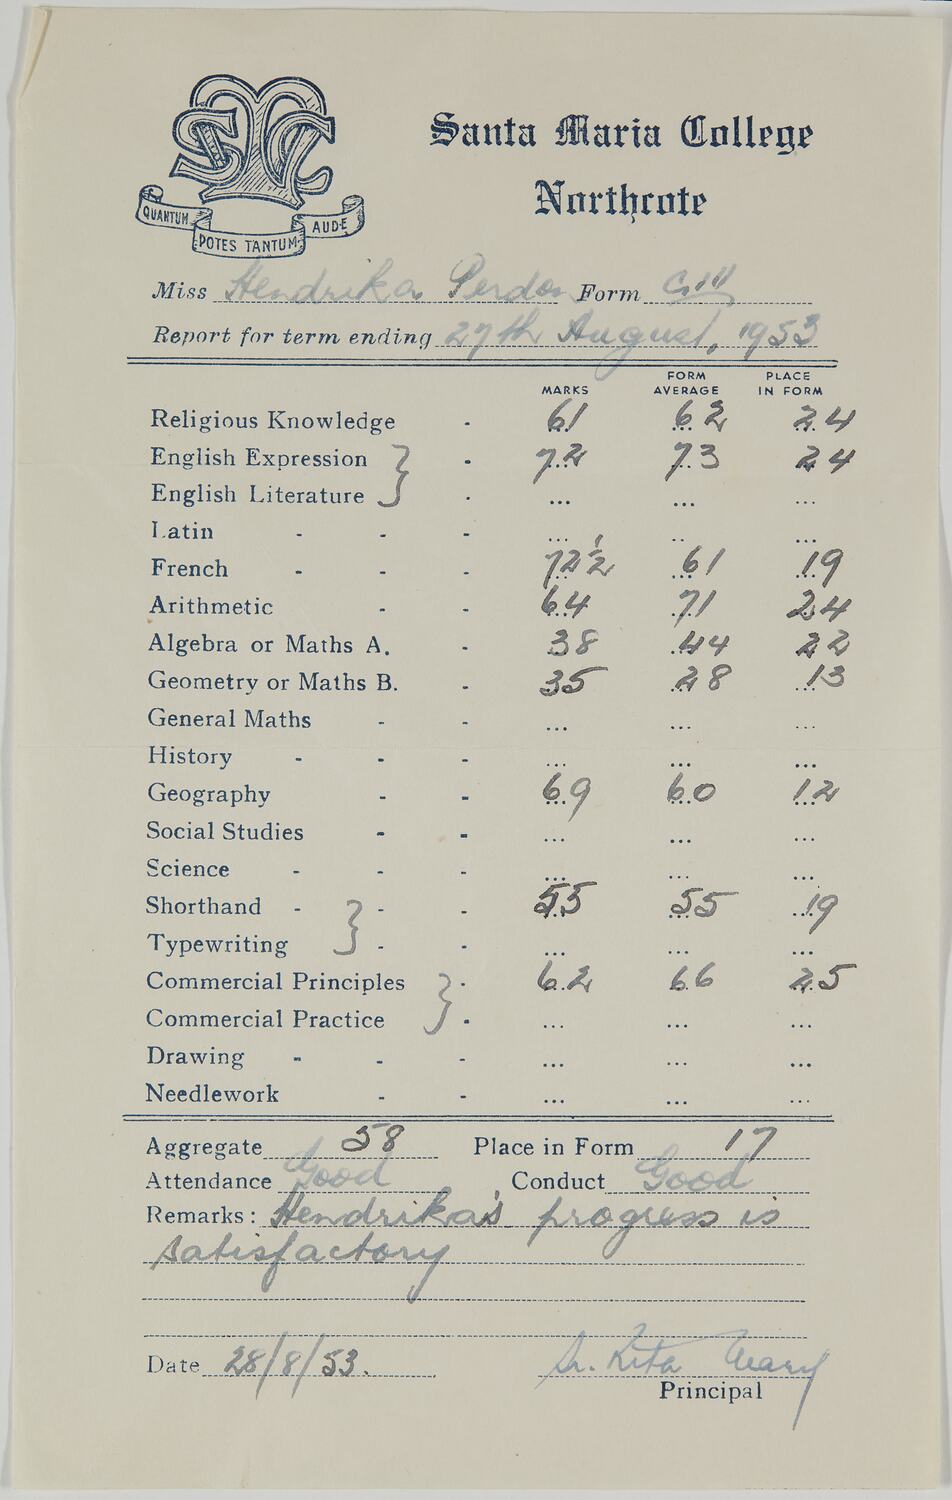 SMC
QUANTUM POTES TANTUM AUDE
Santa Maria College
Northcote
Miss Hendrika Perdon Form C III
Report for term ending 27th August, 1953
MARKS FORM AVERAGE PLACE IN FORM
Religious Knowledge - 61 62 24
English Expression } - 72 73 24
English Literature } - ... ... ...
Latin - - - ... .. ...
French - - - 72½ 61 19
Arithmetic - - 64 71 24
Algebra or Maths A. - 38 44 22
Geometry or Maths B. - 35 28 13
General Maths - - ... ... ...
History - - - ... ... ...
Geography - - 69 60 12
Social Studies - - ... ... ...
Science - - - ... ... ...
Shorthand - } - - 55 55 19
Typewriting } - - ... ... ...
Commercial Principles } - 62 66 25
Commercial Practice } - ... ... ...
Drawing - - - ... ... ...
Needlework - - ... ... ...
Aggregate 58 Place in Form 17
Attendance Good Conduct Good
Remarks: Hendrika's progress is
satisfactory
Date 28/8/53. Sr. Rita Mary
Principal